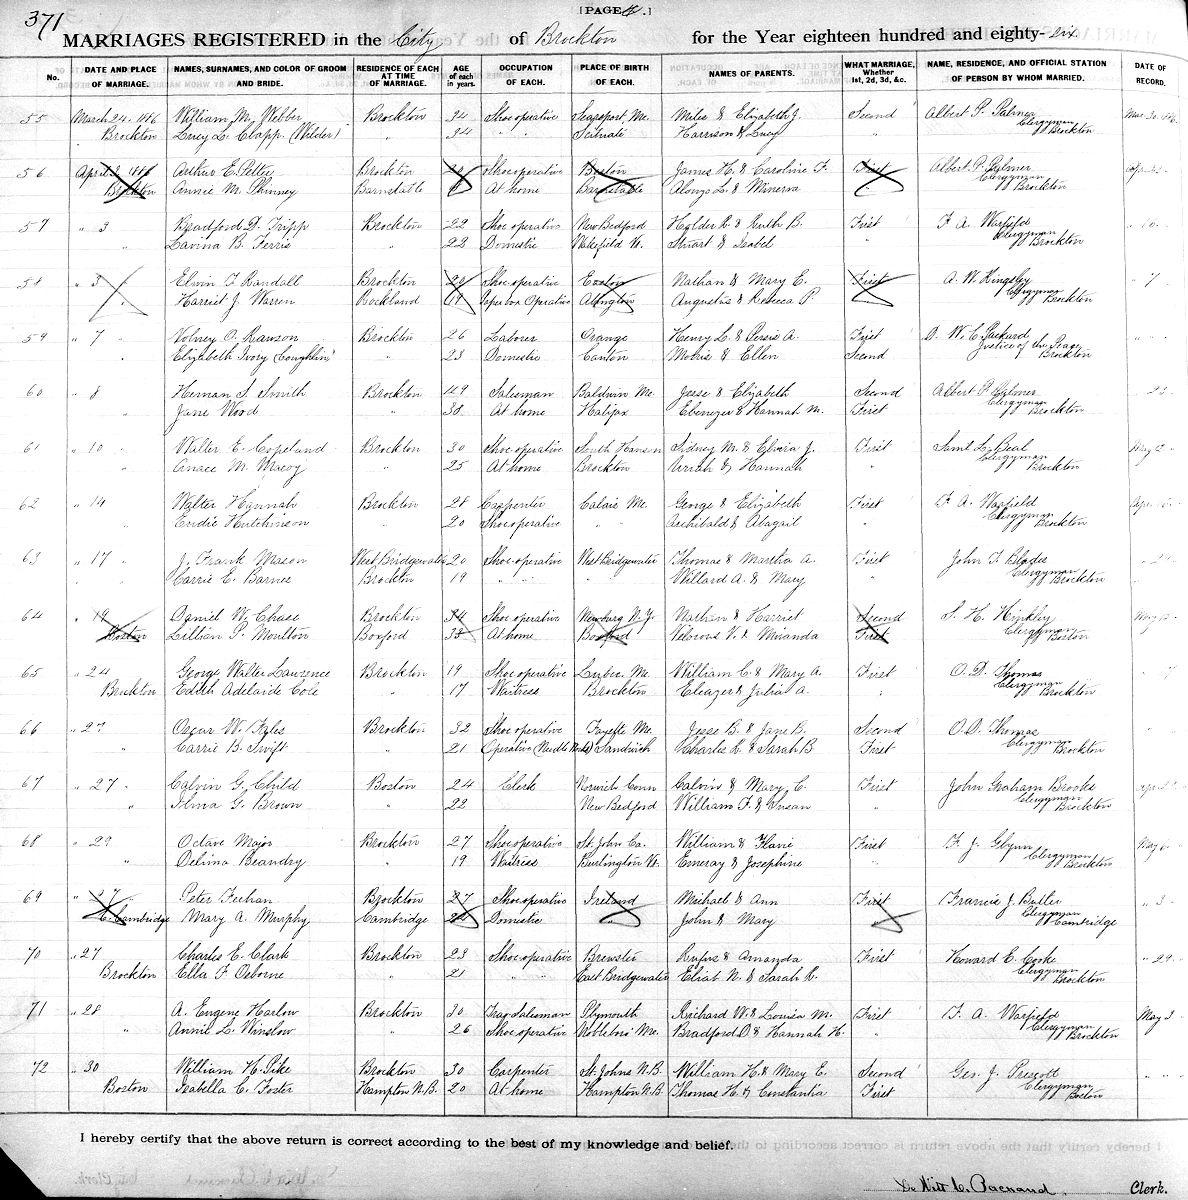 371
[PAGE .]
MARRIAGES REGISTERED in the City of Brockton for the Year eighteen hundred and eighty-six
No. DATE AND PLACE OF MARRIAGE. NAMES, SURNAMES, AND COLOR OF GROOM AND BRIDE. RESIDENCE OF EACH AT TIME OF MARRIAGE. AGE of each in years. OCCUPATION OF EACH. PLACE OF BIRTH OF EACH. NAMES OF PARENTS. WHAT MARRIAGE, Whether 1st, 2d, 3d, &c. NAME, RESIDENCE, AND OFFICIAL STATION OF PERSON BY WHOM MARRIED. DATE OF RECORD.
55 March 24. 1886 William M. Webber Brockton 34 Shoe operative Searsport, Me. Miles & Elizabeth J. Second Albert P. Palmer Clergyman
Brockton Lucy L. Clapp (Wilder) " 34 " " Scituate Harrison & Lucy " Brockton
56 April 1886 Arthur E. Pettee Brockton Shoe operative Boston James H. & Caroline F. First Albert P. Palmer Clergyman
Brockton Annie M. Phinney Barnstable At home Barnstable Alonzo L. & Minerva Brockton
57 " 3 Bradford D. Tripp Brockton 22 Shoe operative New Bedford Holder R. & Ruth B. First F. A. Warfield Clergyman " 10
" Lavina B. Ferris " 22 Domestic Wakefield Stuart & Isabel " Brockton
58 " 3 Elvin F. Randall Brockton 22 Shoe operative Easton Nathan & Mary E. First A. W. Kingsley Clergyman " 7
" Harriet J. Warren Rockland 19 Paper box Operative Abington Augustus & Rebecca P. Brockton
59 " 7 Volney O. Rawson Brockton 26 Laborer Orange Henry L. & Persis A. First D. W. C. Packard Justice of the Peace
" Elizabeth Ivory (Coughlin) " 23 Domestic Canton Morris & Ellen Second Brockton
60 " 8 Heman S. Smith Brockton 49 Salesman Baldwin Me. Jesse & Elizabeth Second Albert P. Palmer Clergyman 23
" Jane Wood " 38 At home Halifax Ebenezer & Hannah M. First Brockton
61 " 10 Walter E. Copeland Brockton 30 Shoe operative South Hanson Sidney M. & Elvira J. First Saml L. Beal Clergyman May 12
" Grace M. Macoy " 25 At home Brockton Uriah & Hannah " Brockton
62 " 14 Walter Hannah Brockton 28 Carpenter Calais Me. George & Elizabeth First F. A. Warfield Clergyman Apr. 15
" Hutchinson " 20 Shoe operative " " Archibald & Abagail " Brockton
63 " 17 J. Frank Mason West Bridgewater 20 Shoe operative West Bridgewater Thomas & Martha A. First John T. Blades Clergyman
" Carrie E. Barnes Brockton 19 " " " Willard A. & Mary " Brockton
64 " 19 Daniel W. Chase Brockton 34 Shoe operative Newburg N.Y. Nathan & Harriet Second S. H. Hinkley Clergyman
Boston Lillian P. Moulton Boxford 38 At home Boxford & Miranda First Boston
65 " 24 George Walter Lawrence Brockton 19 Shoe operative Lubec Me. William C. & Mary A. First O. D. Thomas Clergyman " 7
Brockton Edith Adelaide Cole " 17 Waitress Brockton Eleazer & Julia A. " Brockton
66 " 27 Oscar W. Kyles Brockton 32 Shoe operative Fayette Me. Jesse B. & Jane B. Second O. D. Thomas Clergyman
" Carrie B. Swift " 21 Operative (Needle Works) Sandwich Charles L. & Sarah B First Brockton
67 " 27 Calvin G. Child Boston 24 Clerk Norwich Conn Calvin & Mary C. First John Graham Brooks Clergyman
" Ilma G. Brown " 22 New Bedford William F. & Susan " Brockton
68 " 29 Octave Major Brockton 27 Shoe operative St. John Ca. William & Flavie First F. J. Glynn Clergyman May 6
" Delima Beandry " 19 Waitress Burlington Vt. Emeray & Josephine " Brockton
69 " 27 Peter Feehan Brockton 27 Shoe operative Ireland Michael & Ann First Francis J. Butler Clergyman " 3
Cambridge Mary A. Murphy Cambridge 24 Domestic " John & Mary " Cambridge
70 " 27 Charles E. Clark Brockton 23 Shoe operative Brewster Rufus & Amanda First Howard E. Cooke Clergyman " 29
Brockton Ella F. Osborne " 21 " " East Bridgewater Eliab N. & Sarah R. " Brockton
71 " 28 A. Eugene Harlow Brockton 30 Trav. Salesman Plymouth Richard W. & Louisa M. First F. A. Warfield Clergyman May 3
" Annie L. Winslow " 26 Shoe operative Nobleboro Me. Bradford D. & Hannah H. " Brockton
72 " 30 William H. Pike Brockton 30 Carpenter St. Johns N.B. William H. & Mary E. Second Geo. J. Prescott Clergyman " "
Boston Isabella C. Foster Hampton N.B. 20 At home Hampton N.B. Thomas H. & Constantia First Boston
I hereby certify that the above return is correct according to the best of my knowledge and belief.
De Witt C. Packard Clerk.